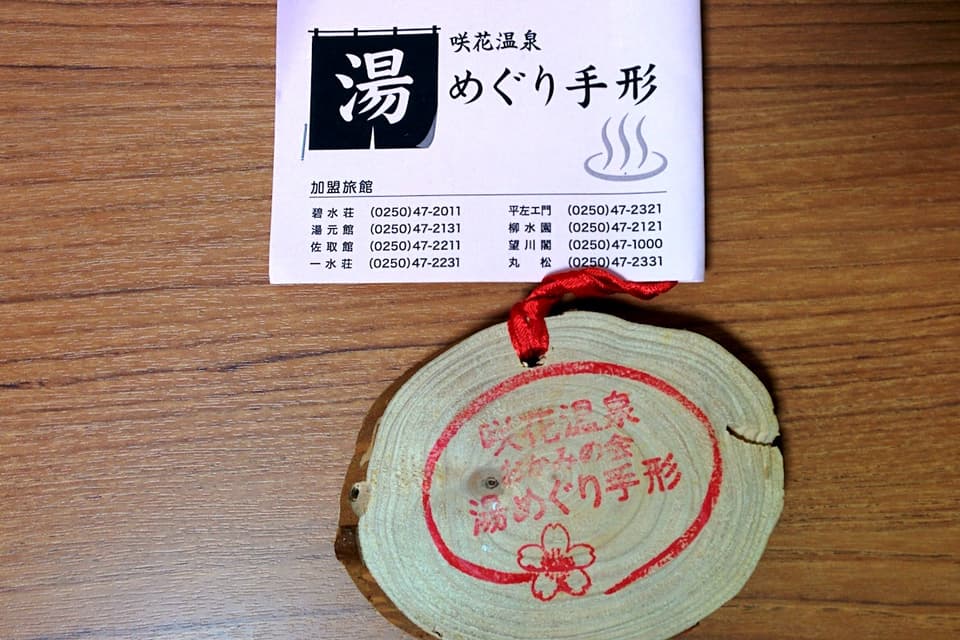 湯
咲花温泉
めぐり手形
加盟旅館
碧水荘 (0250)47-2011
湯元館 (0250)47-2131
佐取館 (0250)47-2211
一水荘 (0250)47-2231
平左エ門 (0250)47-2321
柳水園 (0250)47-2121
望川閣 (0250)47-1000
丸松 (0250)47-2331
咲花温泉
おかみの会
湯めぐり手形